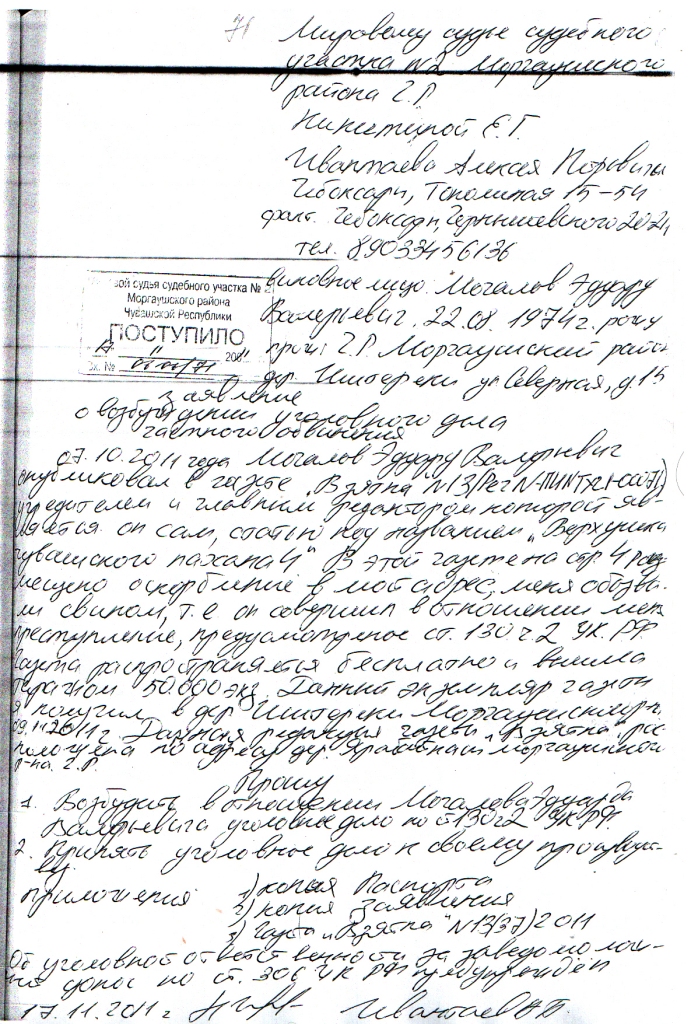 71
Мировому судье судебного
участка №2 Моргаушского
района Ч.Р
Никитиной Е.Г.
Ивантаева Алексея Петровича
Чебоксары, Тополиная 15-54
факт. Чебоксары, Чернышевского
тел. 89033456136
виновное лицо: Мочалов Эдуард
Валерьевич, 22.08.1974 г. рожд
прож: Ч.Р Моргаушский район
дер. Шатереки ул Северная, д.15
вой судья судебного участка №
Моргаушского района
Чувашской Республики
ПОСТУПИЛО
200
Вх. №
заявление
о возбуждении уголовного дела
частного обвинения
07.10.2011 года Мочалов Эдуард Валерьевич
опубликовал в газете "Взятка" N13
учредителем и главным редактором которой яв-
ляется он сам, статью под названием "Верхушка
чувашского пахана 4" В этой газете на стр. 4 раз
мещено оскорбление в мой адрес, меня обозва-
ли свином, т.е. он совершил в отношении меня
преступление, предусмотренное ст. 130 ч.2 УК РФ
Газета распространяется бесплатно и вышла
тиражом 50000 экз. Данный экземпляр газеты
я получил в дер Шатереки Моргаушского р-
2011 г. Данная редакция газеты "Взятка" рас
положена по адресу дер. Моргаушского
р-на Ч.Р.
Прошу
1. Возбудить в отношении Мочалова Эдуарда
Валерьевича уголовное дело по ст 130 ч2 УК РФ.
2. Принять уголовное дело к своему производст-
ву.
приложения 1) копия Паспорта
2) копия Заявления
3) Газета "Взятка" N13(37) 2011
Об уголовной ответственности за заведомо лож-
ный донос по ст. 306 УК РФ предупрежден
17.11.2011 г Ивантаев А.П.